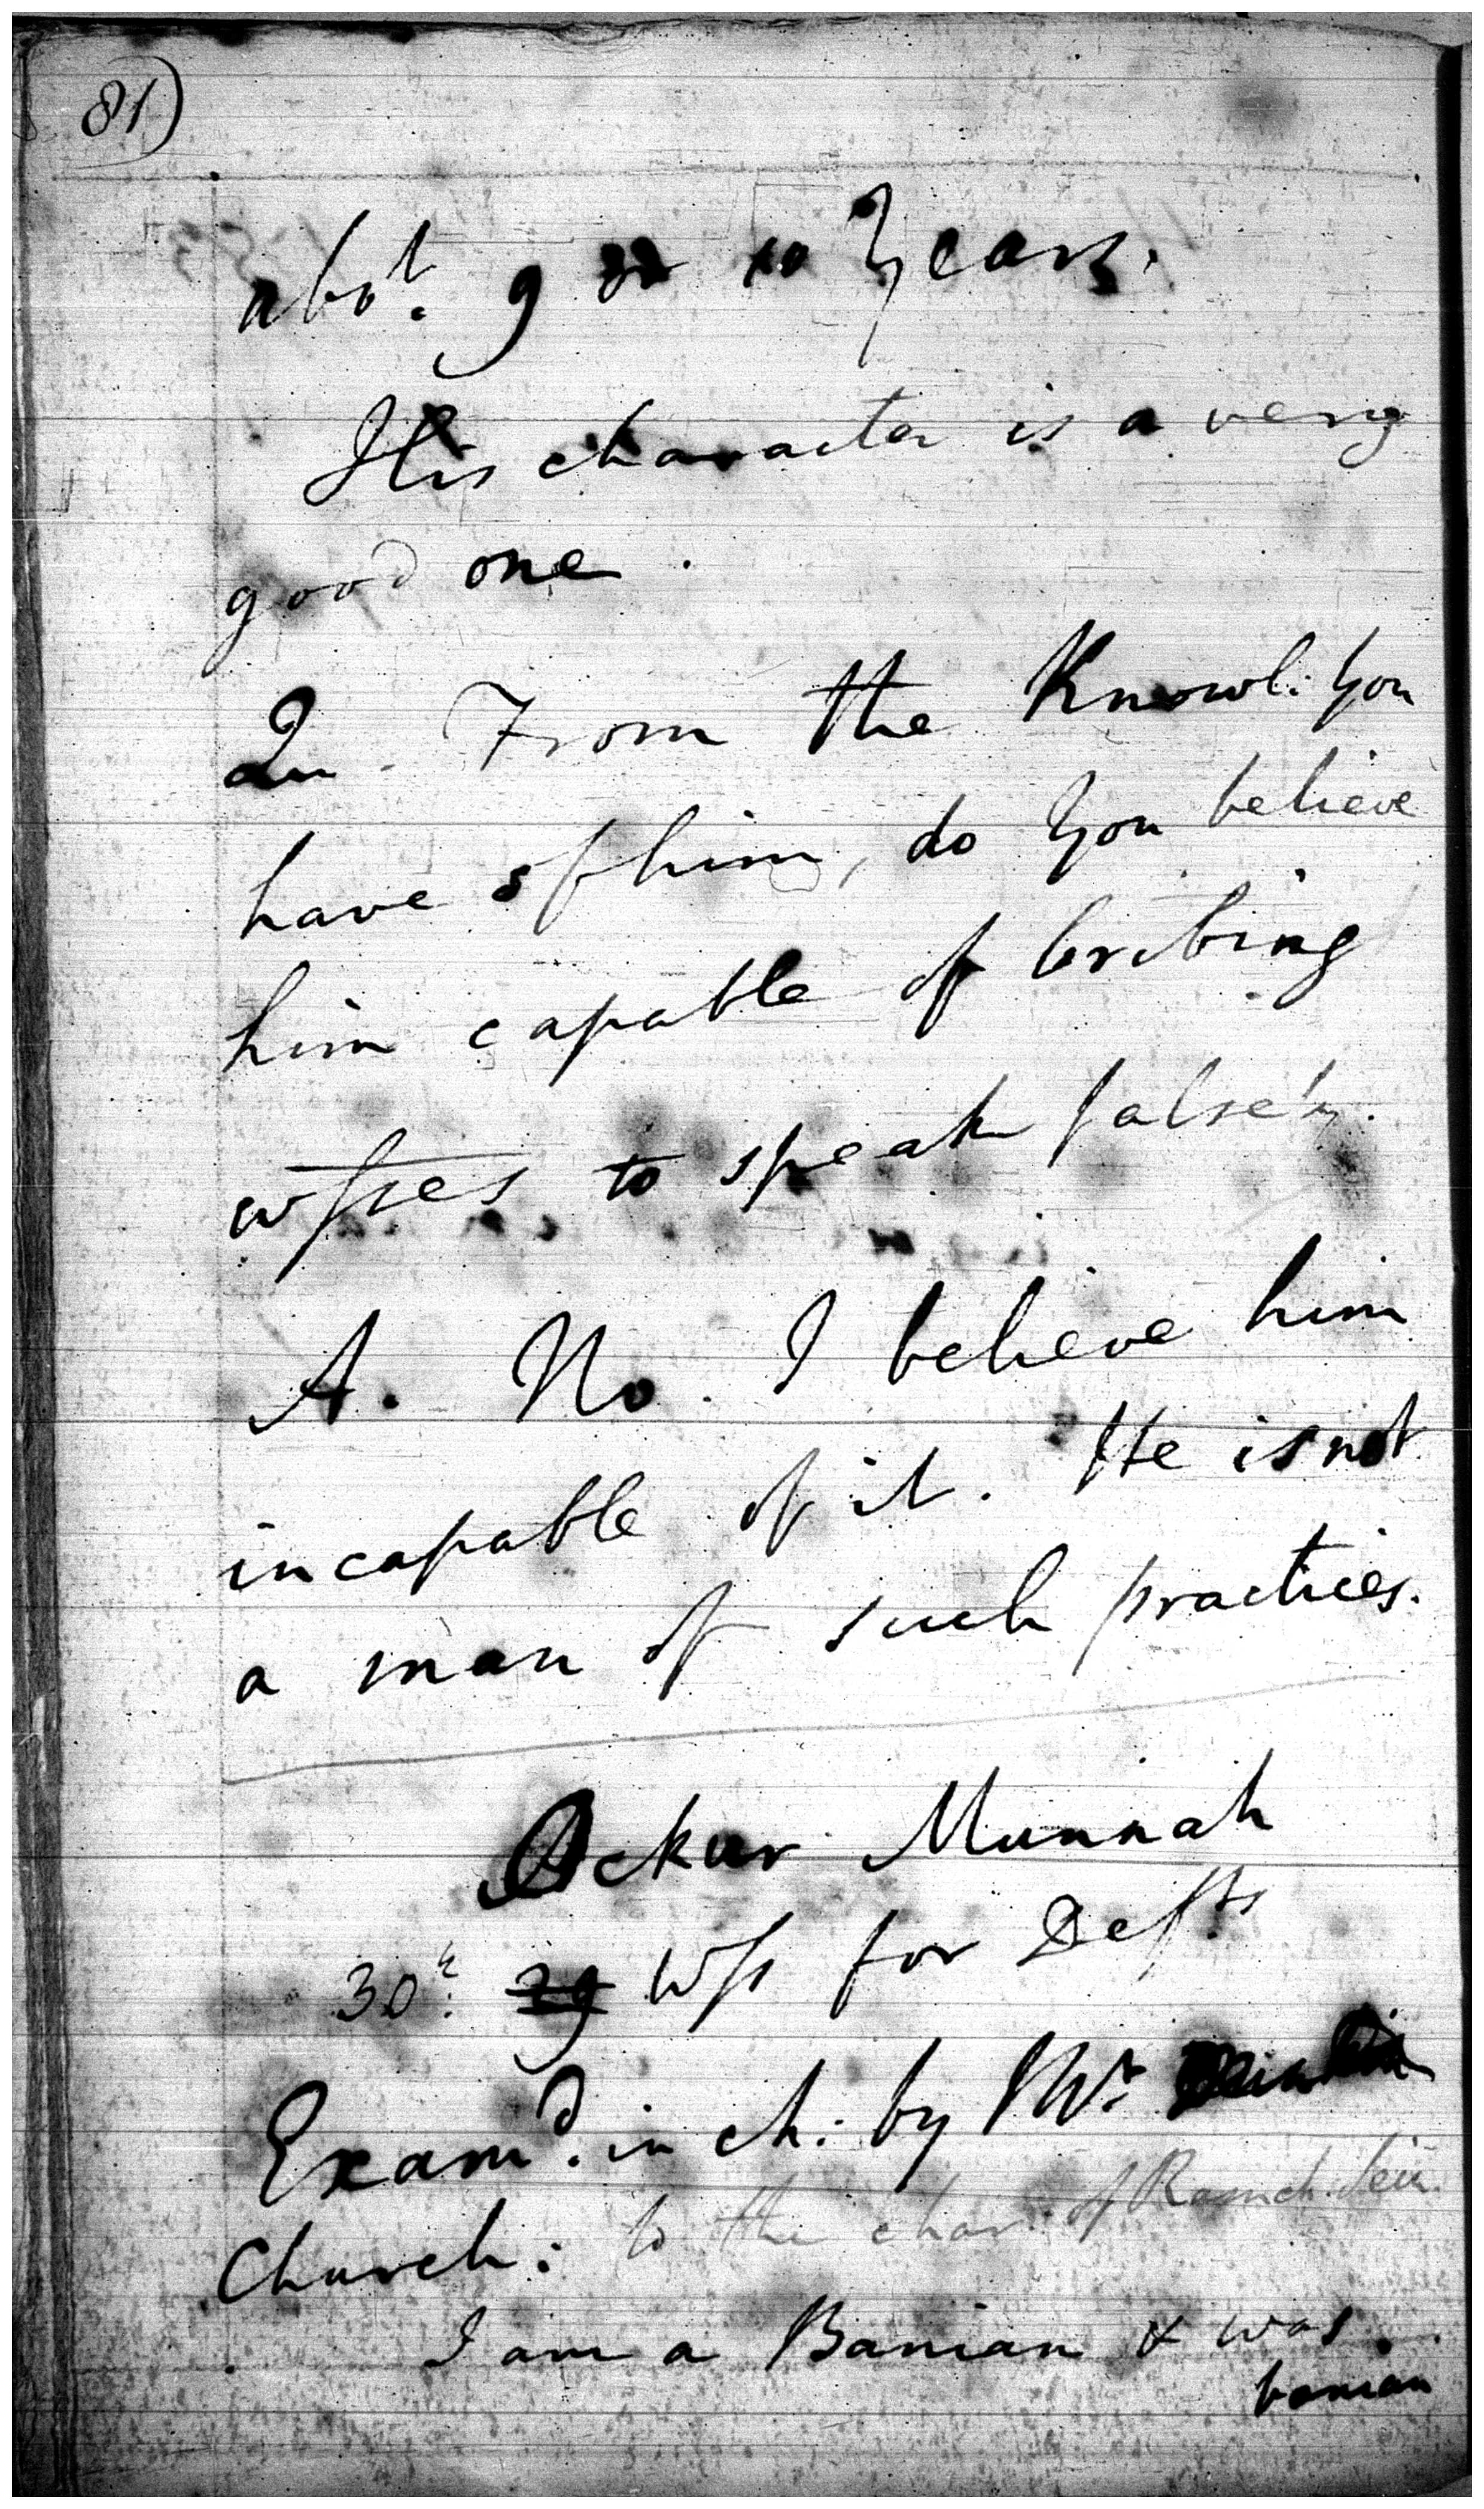 81)
abot. 9 or 10 Years.
His character is a very
good one.
Qu. From the Knowl: You
have of him, do You believe
him capable of bribing
wsses to speak falsely.
A. No. I believe him
incapable of it. He is not
a man of such practices.
Munnah
30th. 29 Wss for Defts
Examd. in ch: by Mr
Church: to the char of
I am a Banian & was.
banian